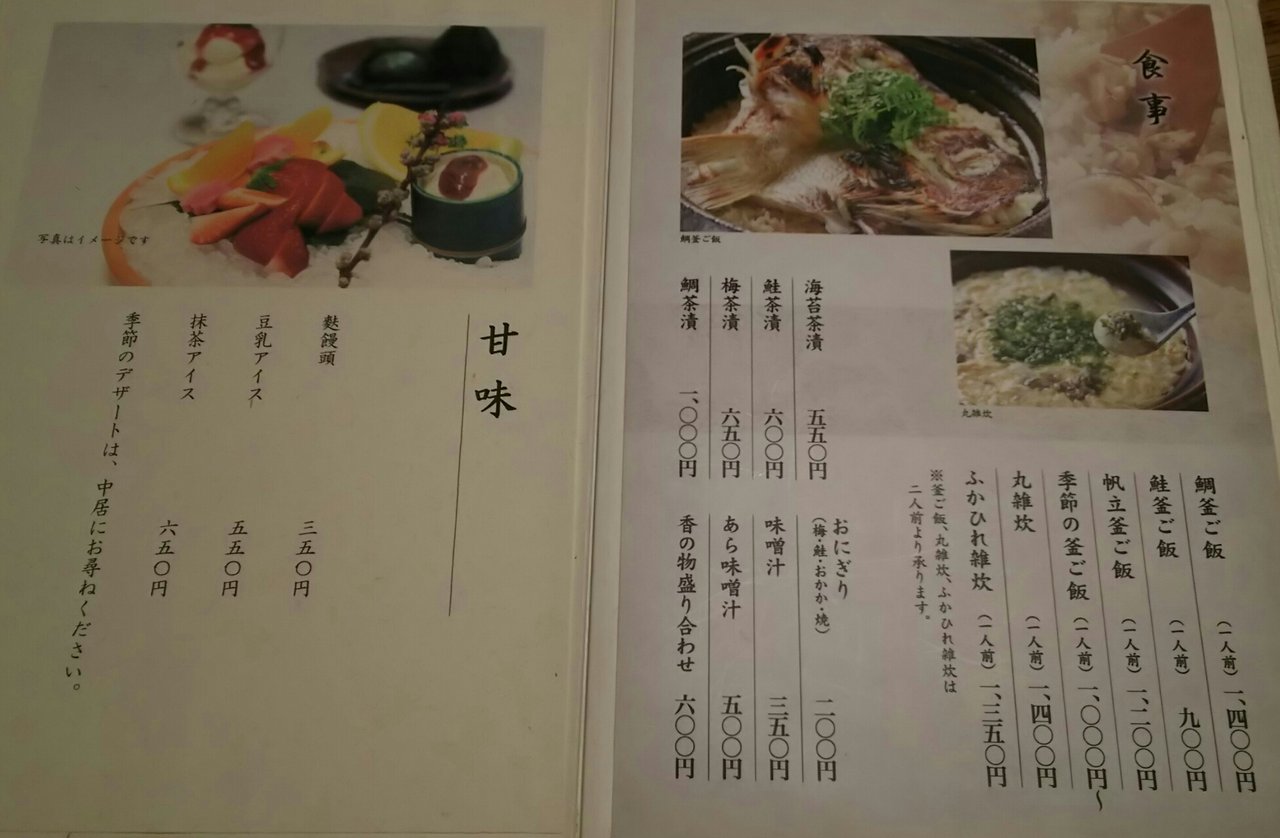 食事
鯛釜ご飯
丸雑炊
鯛釜ご飯 (一人前) 一、四〇〇円
鮭釜ご飯 (一人前) 九〇〇円
帆立釜ご飯 (一人前) 一、二〇〇円
季節の釜ご飯 (一人前) 一、〇〇〇円〜
丸雑炊 (一人前) 一、四〇〇円
ふかひれ雑炊 (一人前) 一、三五〇円
※釜ご飯、丸雑炊、ふかひれ雑炊は
二人前より承ります。
海苔茶漬 五五〇円
鮭茶漬 六〇〇円
梅茶漬 六五〇円
鯛茶漬 一、〇〇〇円
おにぎり
(梅・鮭・おかか・焼) 二〇〇円
味噌汁 三五〇円
あら味噌汁 五〇〇円
香の物盛り合わせ 六〇〇円
写真はイメージです
甘味
麩饅頭 三五〇円
豆乳アイス 五五〇円
抹茶アイス 六五〇円
季節のデザートは、中居にお尋ねください。